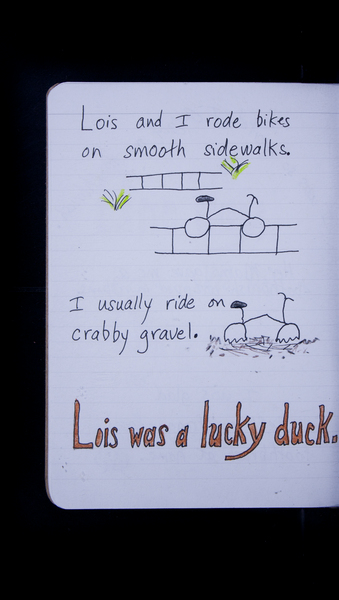 Lois and I rode bikes
on smooth sidewalks.
I usually ride on
crabby gravel.
Lois was a lucky duck.